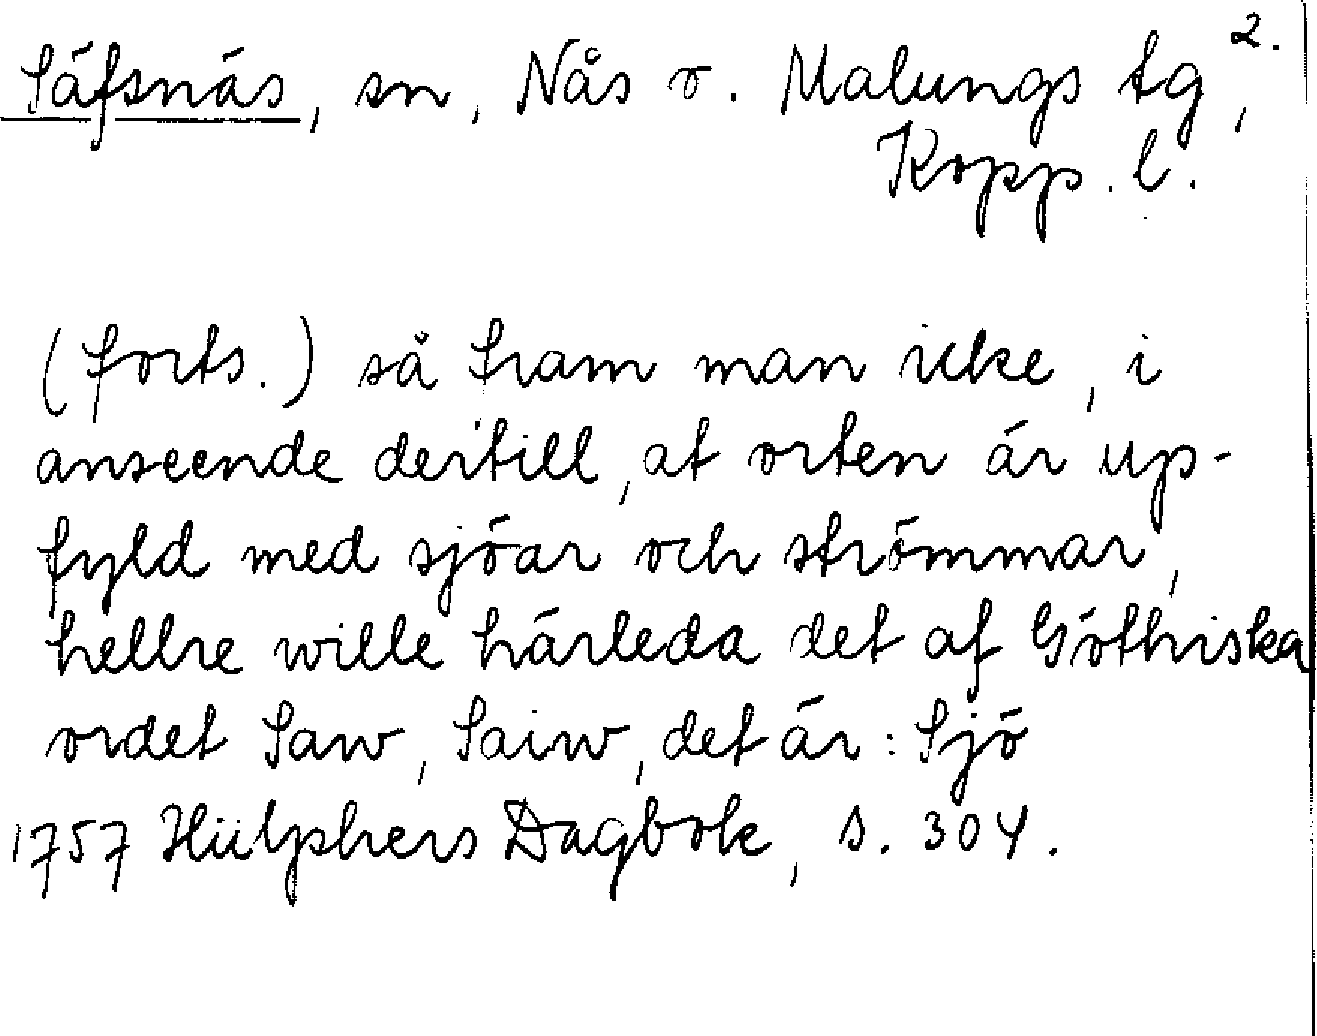 Säfsnäs, sn, Nås o. Malungs tg, 2.
Kopp. l.
(forts.) så fram man icke, i
anseende dertill, at orten är up-
fyld med sjöar och strömmar,
hellre wille härleda det af Göthiska
ordet Saw, Saiw, det är: Sjö
1757 Hülphers Dagbok, s. 304.